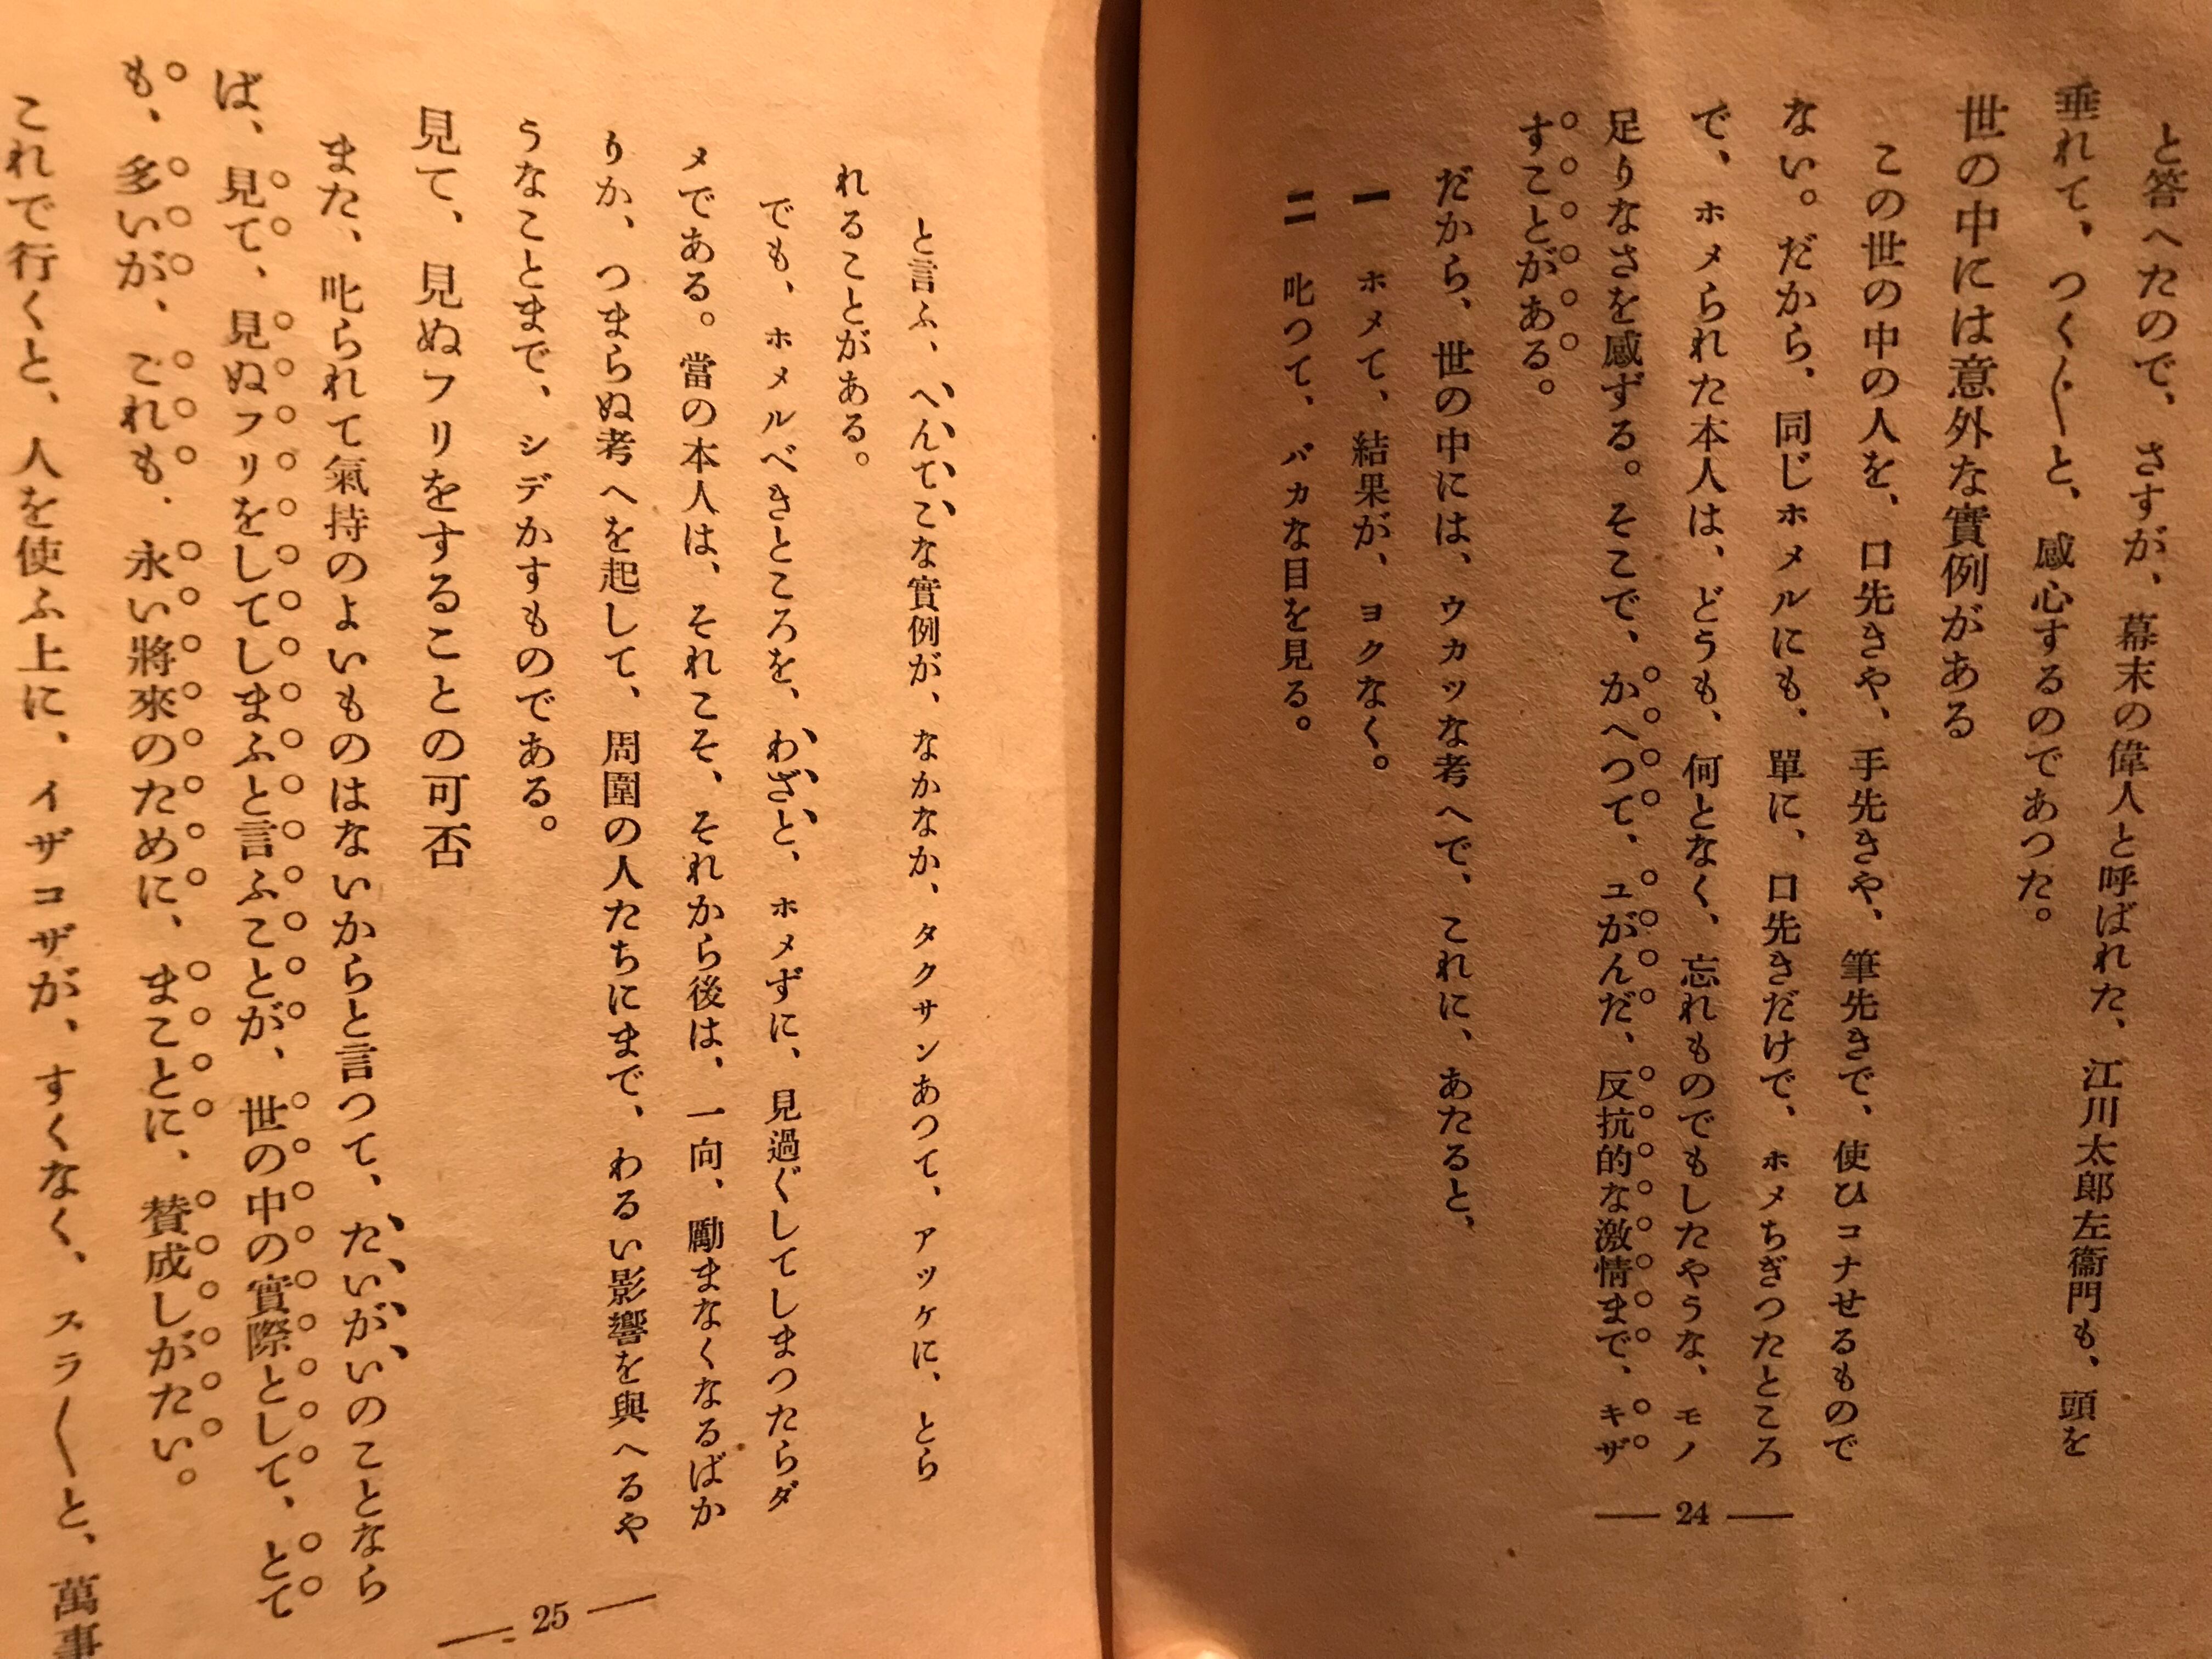 と答へたので、さすが、幕末の偉人と呼ばれた、江川太郎左衞門も、頭を
垂れて、つく〳〵と、感心するのであつた。
世の中には意外な實例がある
この世の中の人を、口先きや、手先きや、筆先きで、使ひコナせるもので
ない。だから、同じホメルにも、單に、口先きだけで、ホメちぎつたところ
で、ホメられた本人は、どうも、何となく、忘れものでもしたやうな、モノ
足りなさを感ずる。そこで、かへつて、ユがんだ、反抗的な激情まで、キザ
すことがある。
だから、世の中には、ウカツな考へで、これに、あたると、
一 ホメて、結果が、ヨクなく。
二 叱つて、バカな目を見る。
— 24 —
と言ふ、へんてこな實例が、なかなか、タクサンあつて、アツケに、とら
れることがある。
でも、ホメルべきところを、わざと、ホメずに、見過ぐしてしまつたらダ
メである。當の本人は、それこそ、それから後は、一向、勵まなくなるばか
りか、つまらぬ考へを起して、周圍の人たちにまで、わるい影響を與へるや
うなことまで、シデかすものである。
見て、見ぬフリをすることの可否
また、叱られて氣持のよいものはないからと言つて、たいがいのことなら
ば、見て、見ぬフリをしてしまふと言ふことが、世の中の實際として、とて
も、多いが、これも、永い將來のために、まことに、賛成しがたい。
これで行くと、人を使ふ上に、イザコザが、すくなく、スラ〳〵と、萬事
— 25 —